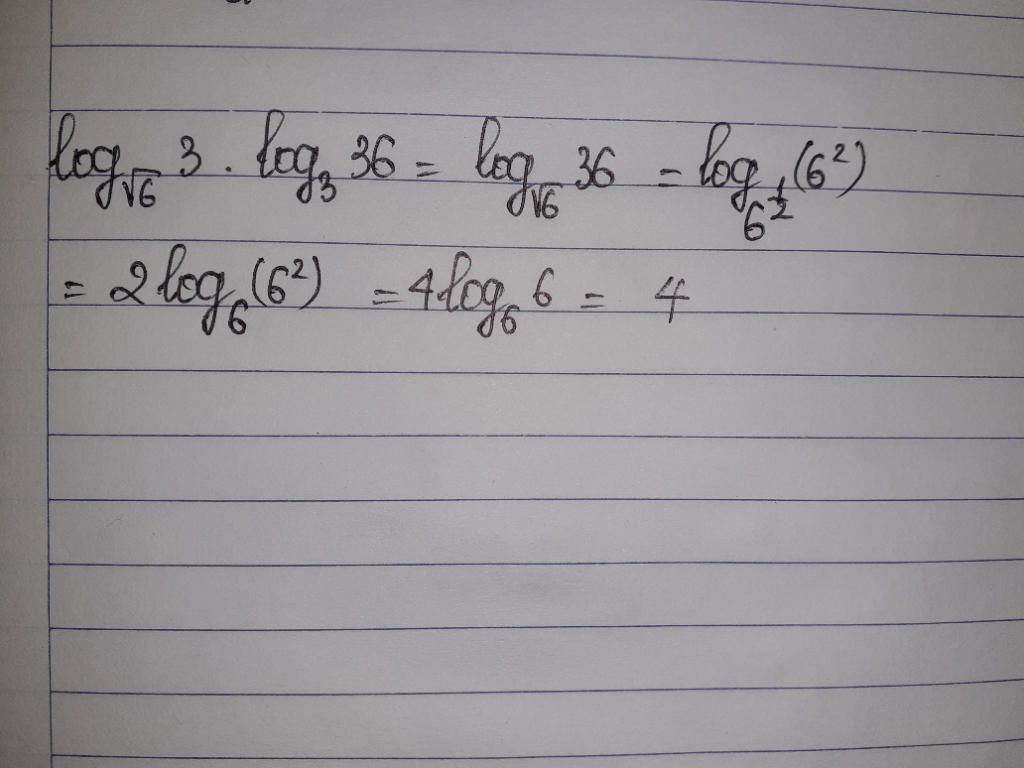 log_√6 3 . log_3 36 = log_√6 36 = log_6^½ (6²)
= 2 log_6 (6²) = 4 log_6 6 = 4